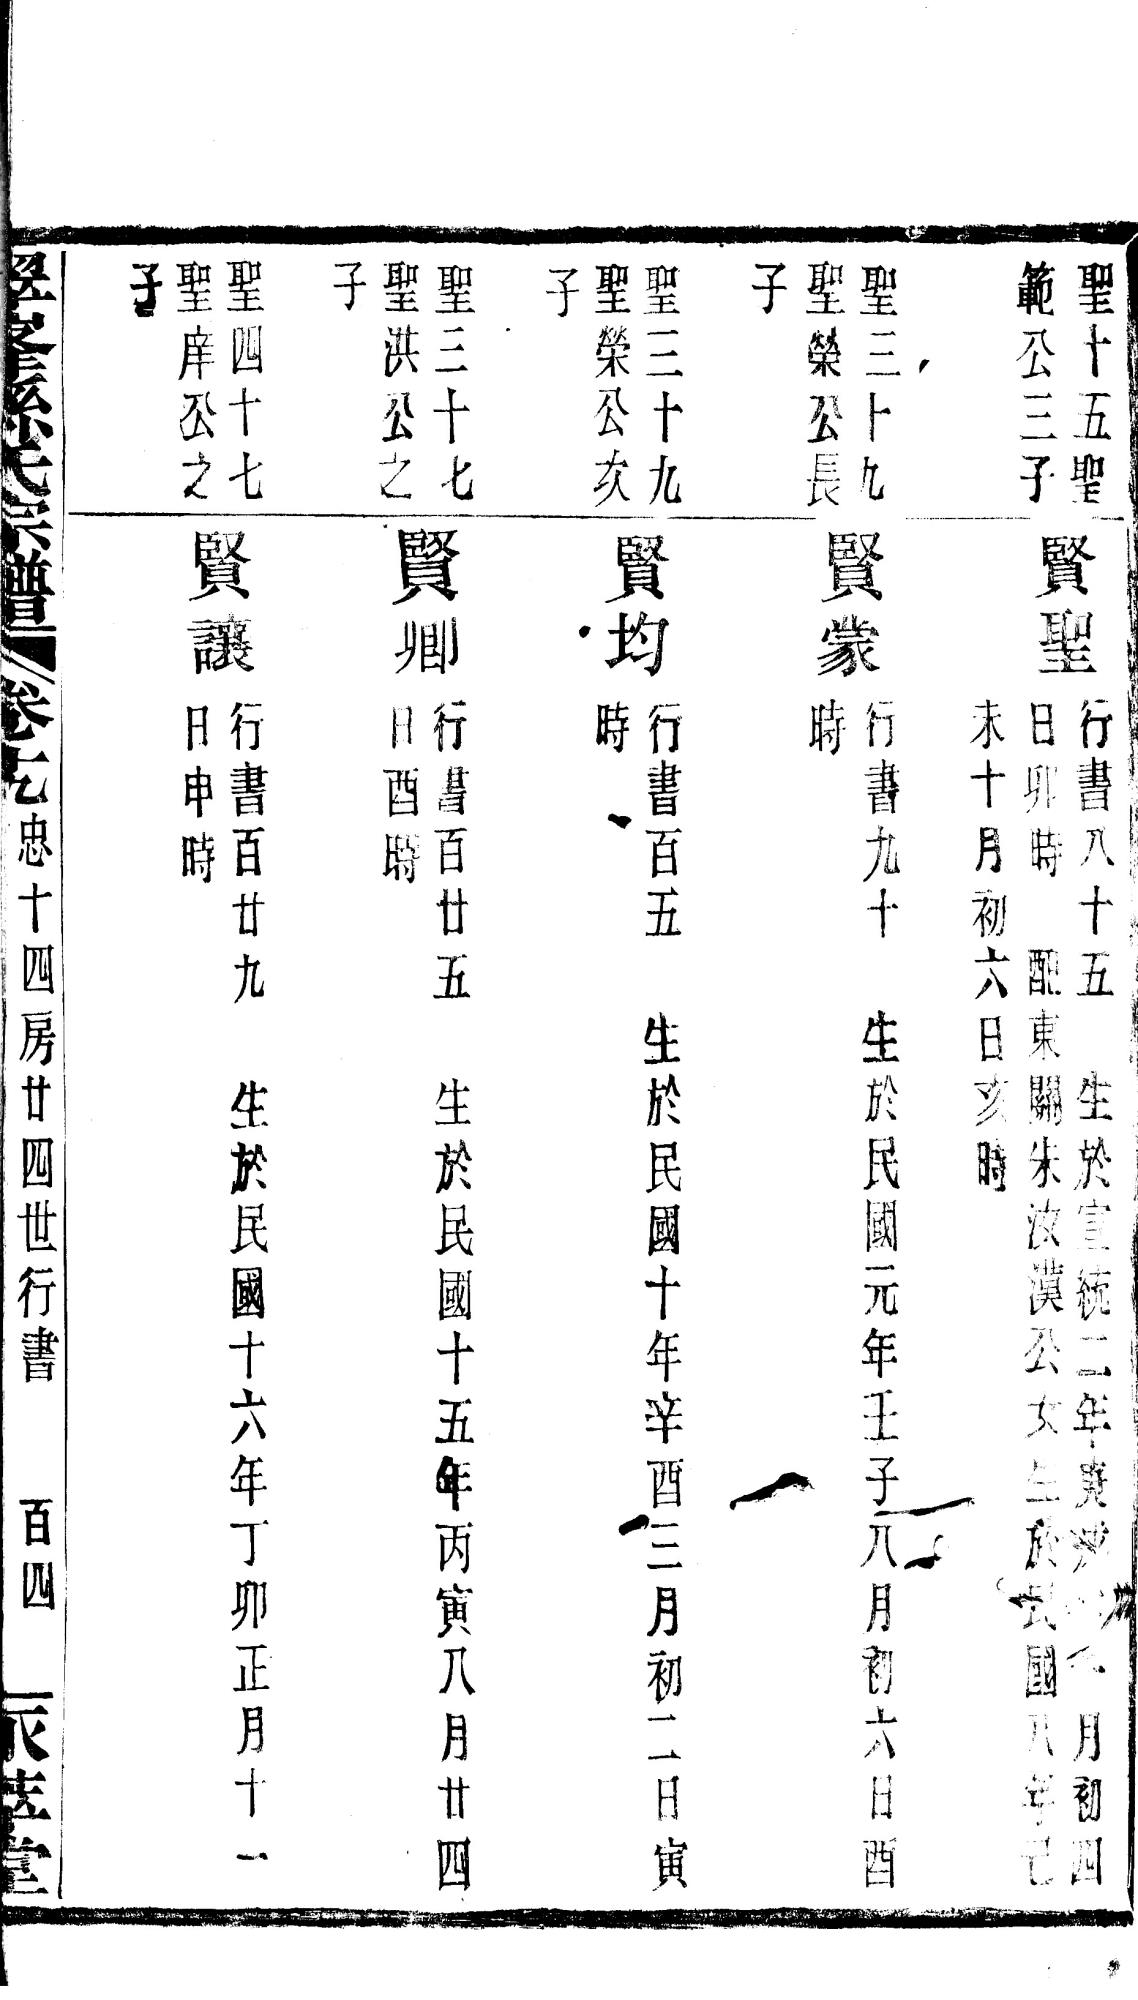 聖十五聖
範公三子
賢聖
行書八十五　生於宣統二年庚戌　月初四
日卯時　配東關朱汝漢公女生於民國八年己
未十月初六日亥時
聖三十九
聖榮公長
子
賢蒙
行書九十　生於民國元年壬子八月初六日酉
時
聖三十九
聖榮公次
子
賢均
行書百五　生於民國十年辛酉三月初二日寅
時
聖三十七
聖洪公之
子
賢卿
行書百廿五　生於民國十五年丙寅八月廿四
日酉時
聖四十七
聖庠公之
子
賢讓
行書百廿九　生於民國十六年丁卯正月十一
日申時
孫氏宗譜
忠十四房廿四世行書　百四
堂